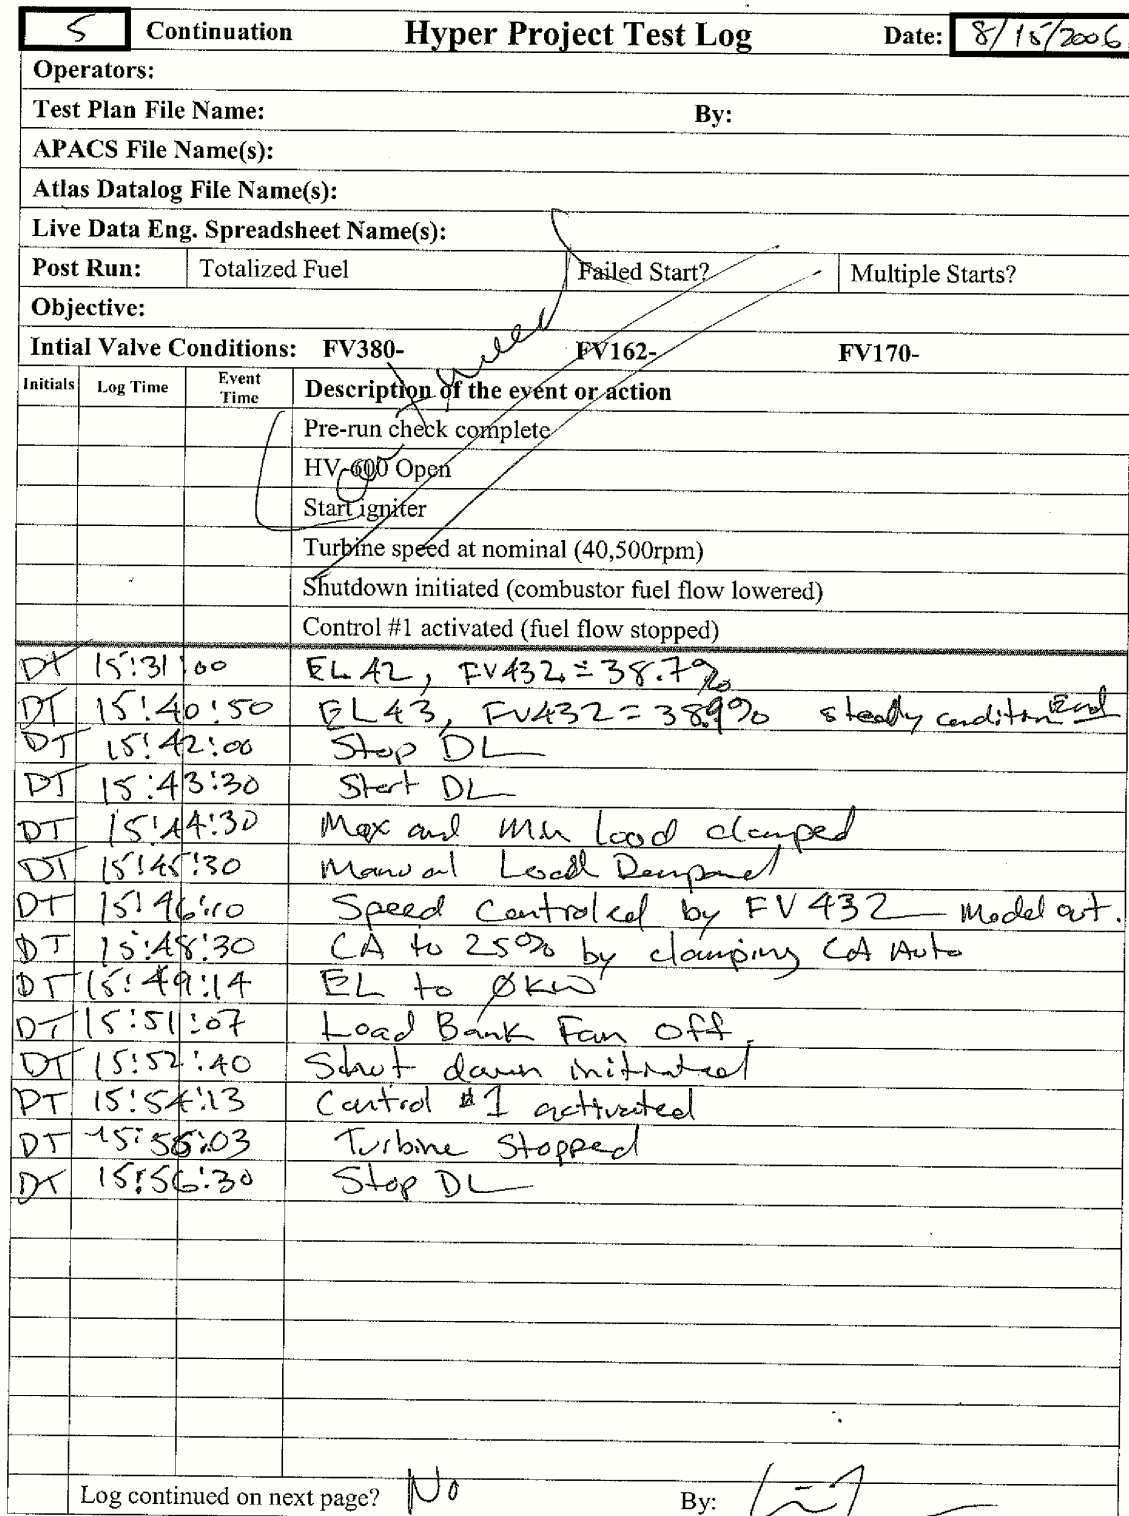 5 Continuation Hyper Project Test Log Date: 8/15/2006
Operators:
Test Plan File Name: By:
APACS File Name(s):
Atlas Datalog File Name(s):
Live Data Eng. Spreadsheet Name(s):
Post Run: Totalized Fuel Failed Start? Multiple Starts?
Objective:
Intial Valve Conditions: FV380- FV162- FV170-
Initials Log Time Event Time Description of the event or action
Pre-run check complete
HV-600 Open
Start igniter
Turbine speed at nominal (40,500rpm)
Shutdown initiated (combustor fuel flow lowered)
Control #1 activated (fuel flow stopped)
DT 15:31:00 EL 42, FV432 = 38.7%
DT 15:40:50 EL43, FV432 = 38.9% steady condition End
DT 15:42:00 Stop DL
DT 15:43:30 Start DL
DT 15:44:30 Max and Min Load clamped
DT 15:45:30 Manual Load Demand
DT 15:46:10 Speed Controled by FV432 Model out.
DT 15:48:30 CA to 25% by clamping CA Auto
DT 15:49:14 EL to ØKW
DT 15:51:07 Load Bank Fan off.
DT 15:52:40 Shut down initiated
DT 15:54:13 Control #1 activated
DT 15:56:03 Turbine Stopped
DT 15:56:30 Stop DL
Log continued on next page? No By: